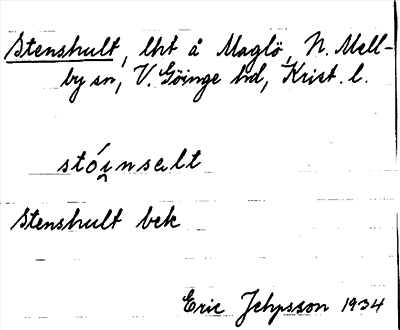 Stenshult, lht å Maglö, N. Mell-
by sn, V. Göinge hd, Krist. l.
stói̯nsalt
Stenshult bek
Eric Jepsson 1934